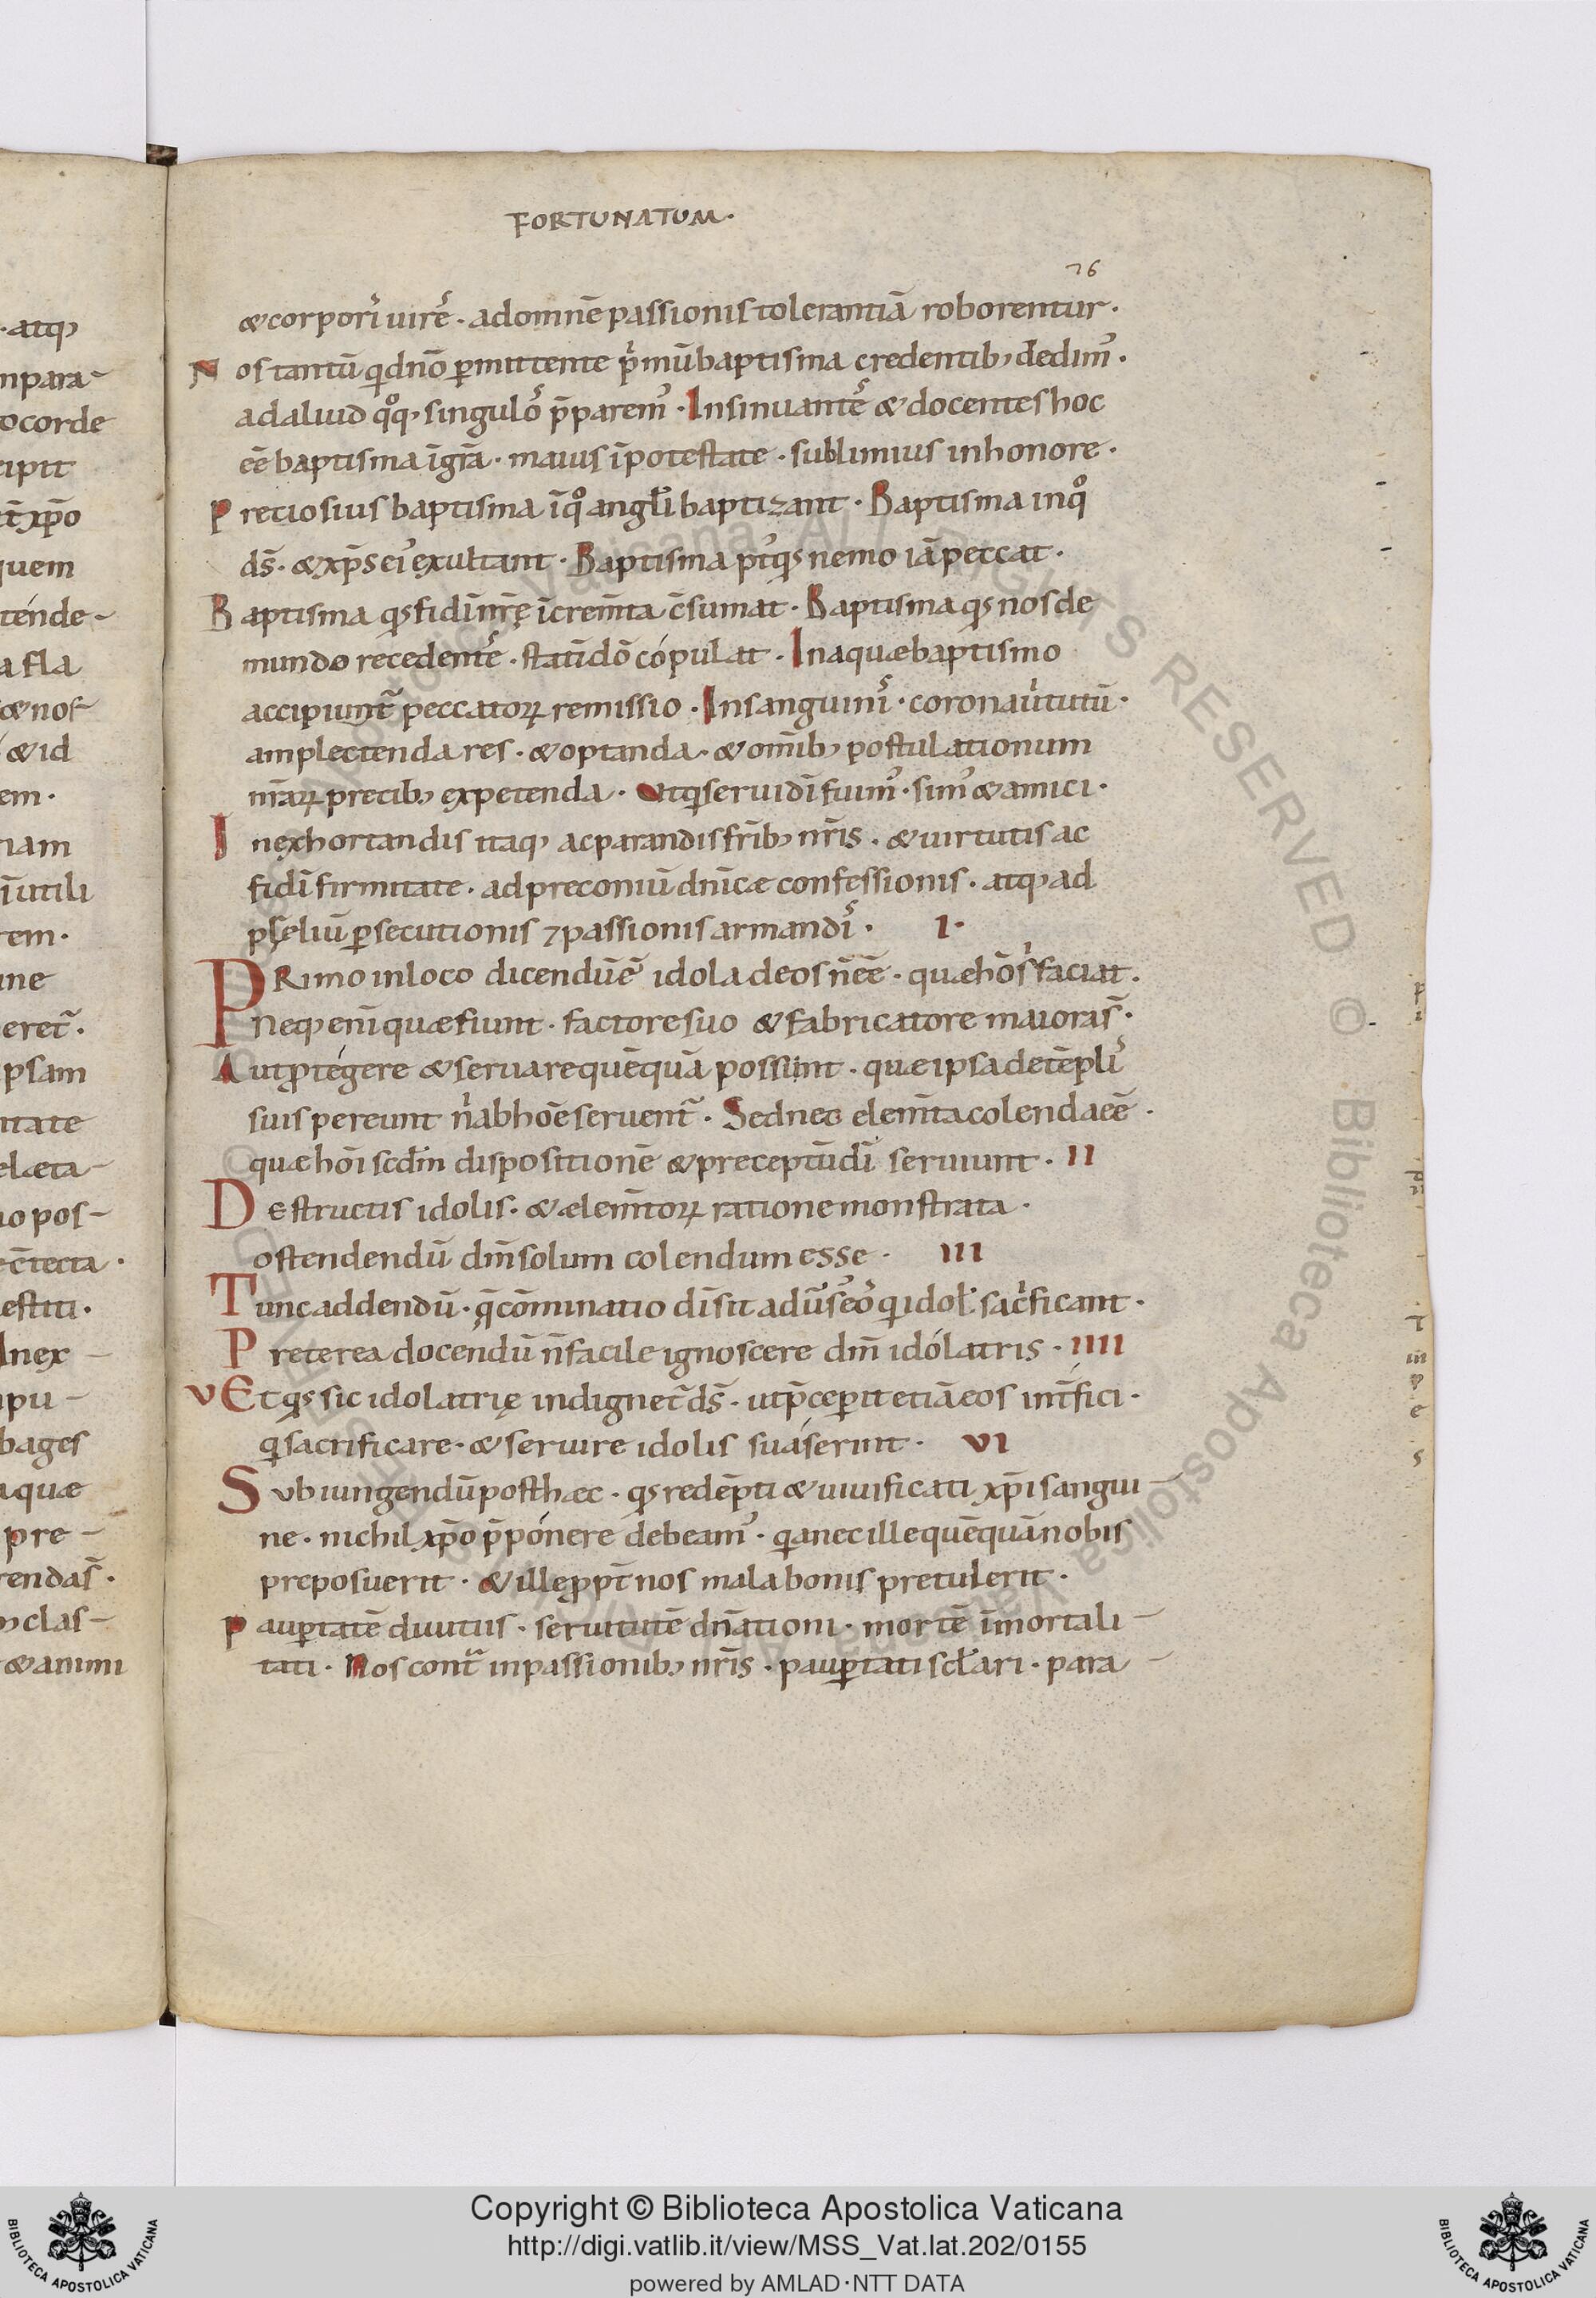 FORTUNATUM.
76
& corporis uires. ad omnē passionis tolerantiā roborentur.
Nos tantū qi dnō p̱mittente p'mū baptisma credentib; dedim᾽.
ad aliud q°q; singulos p̄parem᾽. Insinuantes & docentes hoc
eē baptisma ī gr̄a. maius ī potestate. sublimius in honore.
Pretiosius baptisma ī q° angl̄i baptizant. Baptisma in q°
ds̄. & xp̄s ei᾽ exultant. Baptisma p᾽t qd nemo iā peccat.
Baptisma qd fidī nr̄ę īcrem̄ta c̄sumat. Baptisma qd nos de
mundo recedentes. statī dō cópulat. In aquæ baptismo
accipiunt̄ peccatoꝝ remissio. In sanguinis. corona u'tutū.
amplectenda res. & optanda. & om̄ib; postulationum
nr̄aꝝ precib; expetenda. Ut qi serui dī fuim᾽. sim᾽ & amici.
In exhortandis itaq; ac parandis fr̄ib; nr̄is. & uirtutis ac
fidī firmitate. ad preconiū dn̄icæ confessionis. atq; ad
p̱lęliū p̱secutionis ⁊ passionis armandis. I.
PRimo in loco dicendū ē idola deos n̄ eē. quæ hōs faciat.
Neq; enī quæ fiunt. factore suo & fabricatore maiora s̄.
Aut p̱tégere & seruare quēquā possunt. quæ ipsa de tēplis
suis pereunt n' ab hoē seruent̄. Sed nec elem̄ta colenda eē.
quæ hōi scd̄m dispositionē & preceptū dī seruiunt. II
Destructis idolis. & ælem̄toꝝ ratione monstrata.
ostendendū dm̄ solum colendum esse. III
Tunc addendū. q̄ cōminatio dī sit adūs eos qi idol̄ sac'ficant.
Preterea docendū n̄ facile ignoscere dm̄ idólatris. IIII
V Et qd sic idolatrię indignet̄ ds̄. ut p̄cep̱it etiā eos int̄fici.
qi sacrificare. & seruire idolis suáserint. VI
Subiungendū post hæc. qd redēpti & uiuificati xp̄i sangui-
ne. nichil xp̄o p̄pónere debeam᾽. qia nec ille quēquā nobis
preposuerit. & ille p̱pt̄ nos mala bonis pretulerit.
Paup̱tatē diuitiis. seruitutē dn̄ationi. mortē īmortali-
tati. Nos cont̄ in passionib; nr̄is. paup̱tati scl̄ari. para-
Copyright © Biblioteca Apostolica Vaticana
http://digi.vatlib.it/view/MSS_Vat.lat.202/0155
powered by AMLAD·NTT DATA